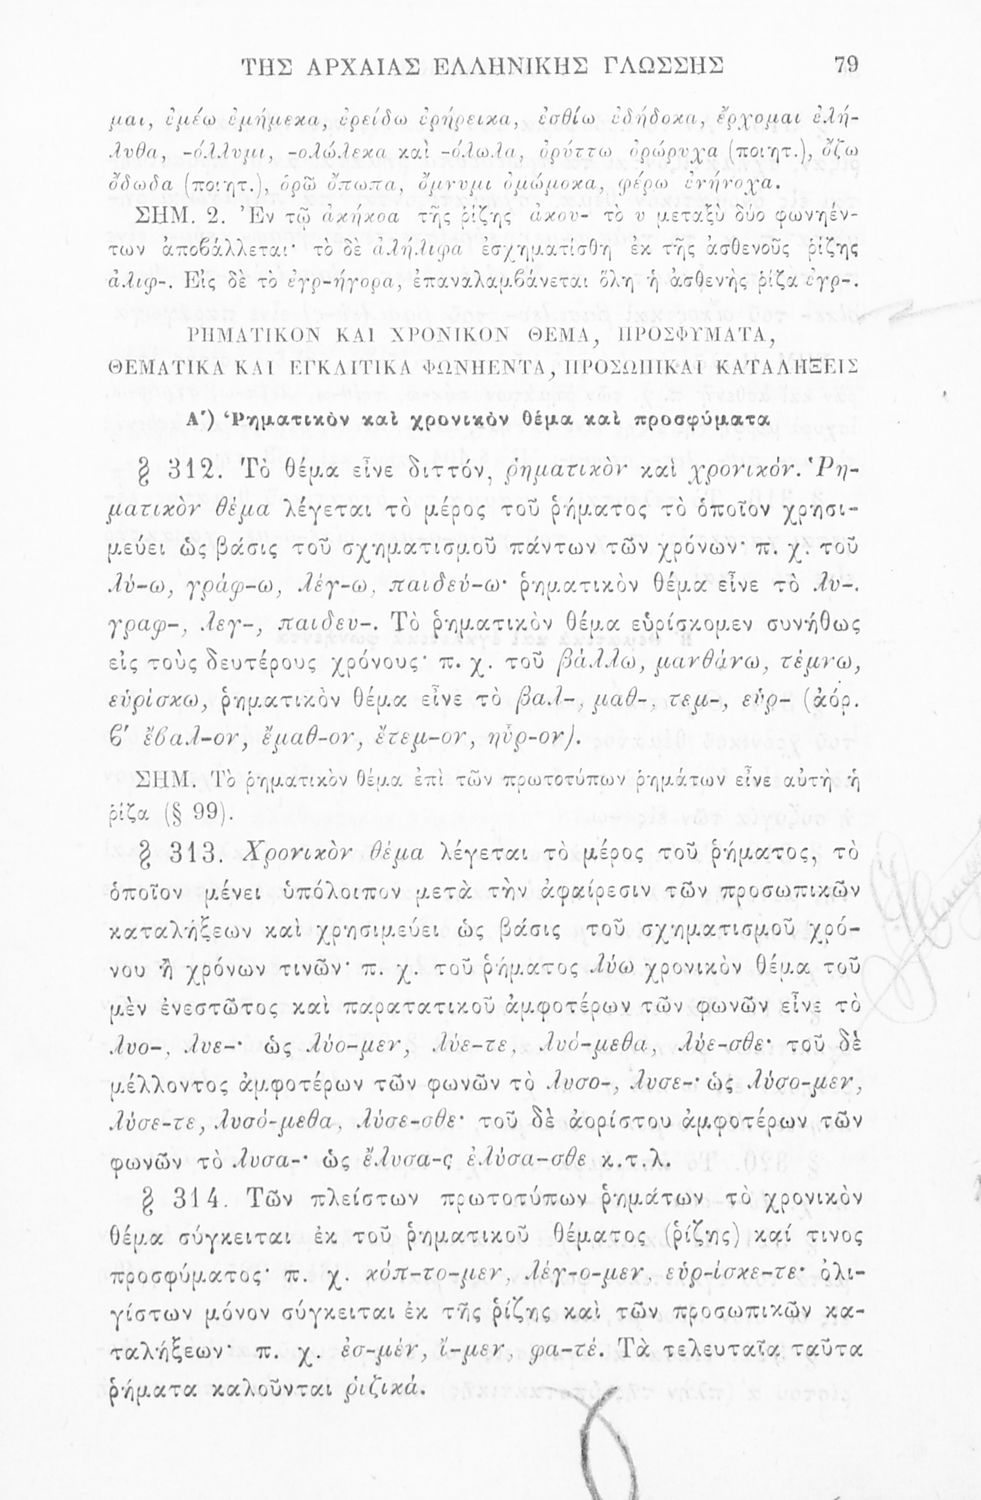 ΤΗΣ ΑΡΧΑΙΑΣ ΕΛΛΗΝΙΚΗΣ ΓΛΩΣΣΗΣ 79
μαι, ἐμέω ἐμήμεκα, ἐρείδω ἐρήρεικα, ἐσθίω ἐδήδοκα, ἔρχομαι ἐλή-
λυθα, -όλλυμι, -ολώλεκα καὶ -όλωλα, ὀρύττω ὀρώρυχα (ποιητ.), ὄζω
ὄδωδα (ποιητ.), ὁρῶ ὄπωπα, ὄμνυμι ὀμώμοκα, φέρω ἐνήνοχα.
ΣΗΜ. 2. Ἐν τῷ ἀκήκοα τῆς ῥίζης ἀκου- τὸ υ μεταξὺ δύο φωνηέν-
των ἀποβάλλεται· τὸ δὲ ἀλήλιφα ἐσχηματίσθη ἐκ τῆς ἀσθενοῦς ῥίζης
ἀλιφ-. Εἰς δὲ τὸ ἐγρ-ήγορα, ἐπαναλαμβάνεται ὅλη ἡ ἀσθενὴς ῥίζα ἐγρ-.
ΡΗΜΑΤΙΚΟΝ ΚΑΙ ΧΡΟΝΙΚΟΝ ΘΕΜΑ, ΠΡΟΣΦΥΜΑΤΑ,
ΘΕΜΑΤΙΚΑ ΚΑΙ ΕΓΚΛΙΤΙΚΑ ΦΩΝΗΕΝΤΑ, ΠΡΟΣΩΠΙΚΑΙ ΚΑΤΑΛΗΞΕΙΣ
Α΄) Ῥηματικὸν καὶ χρονικὸν θέμα καὶ προσφύματα
§ 312. Τὸ θέμα εἶνε διττόν, ῥηματικὸν καὶ χρονικόν. Ῥη-
ματικὸν θέμα λέγεται τὸ μέρος τοῦ ῥήματος τὸ ὁποῖον χρησι-
μεύει ὡς βάσις τοῦ σχηματισμοῦ πάντων τῶν χρόνων· π. χ. τοῦ
λύ-ω, γράφ-ω, λέγ-ω, παιδεύ-ω· ῥηματικὸν θέμα εἶνε τὸ λυ-.
γραφ-, λεγ-, παιδευ-. Τὸ ῥηματικὸν θέμα εὑρίσκομεν συνήθως
εἰς τοὺς δευτέρους χρόνους· π. χ. τοῦ βάλλω, μανθάνω, τέμνω,
εὑρίσκω, ῥηματικὸν θέμα εἶνε τὸ βαλ-, μαθ-, τεμ-, εὑρ- (ἀόρ.
β΄ ἔβαλ-ον, ἔμαθ-ον, ἔτεμ-ον, ηὗρ-ον).
ΣΗΜ. Τὸ ῥηματικὸν θέμα ἐπὶ τῶν πρωτοτύπων ῥημάτων εἶνε αὐτὴ ἡ
ῥίζα (§ 99).
§ 313. Χρονικὸν θέμα λέγεται τὸ μέρος τοῦ ῥήματος, τὸ
ὁποῖον μένει ὑπόλοιπον μετὰ τὴν ἀφαίρεσιν τῶν προσωπικῶν
καταλήξεων καὶ χρησιμεύει ὡς βάσις τοῦ σχηματισμοῦ χρό-
νου ἢ χρόνων τινῶν· π. χ. τοῦ ῥήματος λύω χρονικὸν θέμα τοῦ
μὲν ἐνεστῶτος καὶ παρατατικοῦ ἀμφοτέρων τῶν φωνῶν εἶνε τὸ
λυο-, λυε-· ὡς λύο-μεν, λύε-τε, λυό-μεθα, λύε-σθε· τοῦ δὲ
μέλλοντος ἀμφοτέρων τῶν φωνῶν τὸ λυσο-, λυσε-· ὡς λύσο-μεν,
λύσε-τε, λυσό-μεθα, λύσε-σθε· τοῦ δὲ ἀορίστου ἀμφοτέρων τῶν
φωνῶν τὸ λυσα-· ὡς ἔλυσα-ς ἐλύσα-σθε κ.τ.λ.
§ 314. Τῶν πλείστων πρωτοτύπων ῥημάτων τὸ χρονικὸν
θέμα σύγκειται ἐκ τοῦ ῥηματικοῦ θέματος (ῥίζης) καί τινος
προσφύματος· π. χ. κόπ-το-μεν, λέγ-ο-μεν, εὑρ-ίσκε-τε· ὀλι-
γίστων μόνον σύγκειται ἐκ τῆς ῥίζης καὶ τῶν προσωπικῶν κα-
ταλήξεων· π. χ. ἐσ-μέν, ἴ-μεν, φα-τέ. Τὰ τελευταῖα ταῦτα
ῥήματα καλοῦνται ῥιζικά.